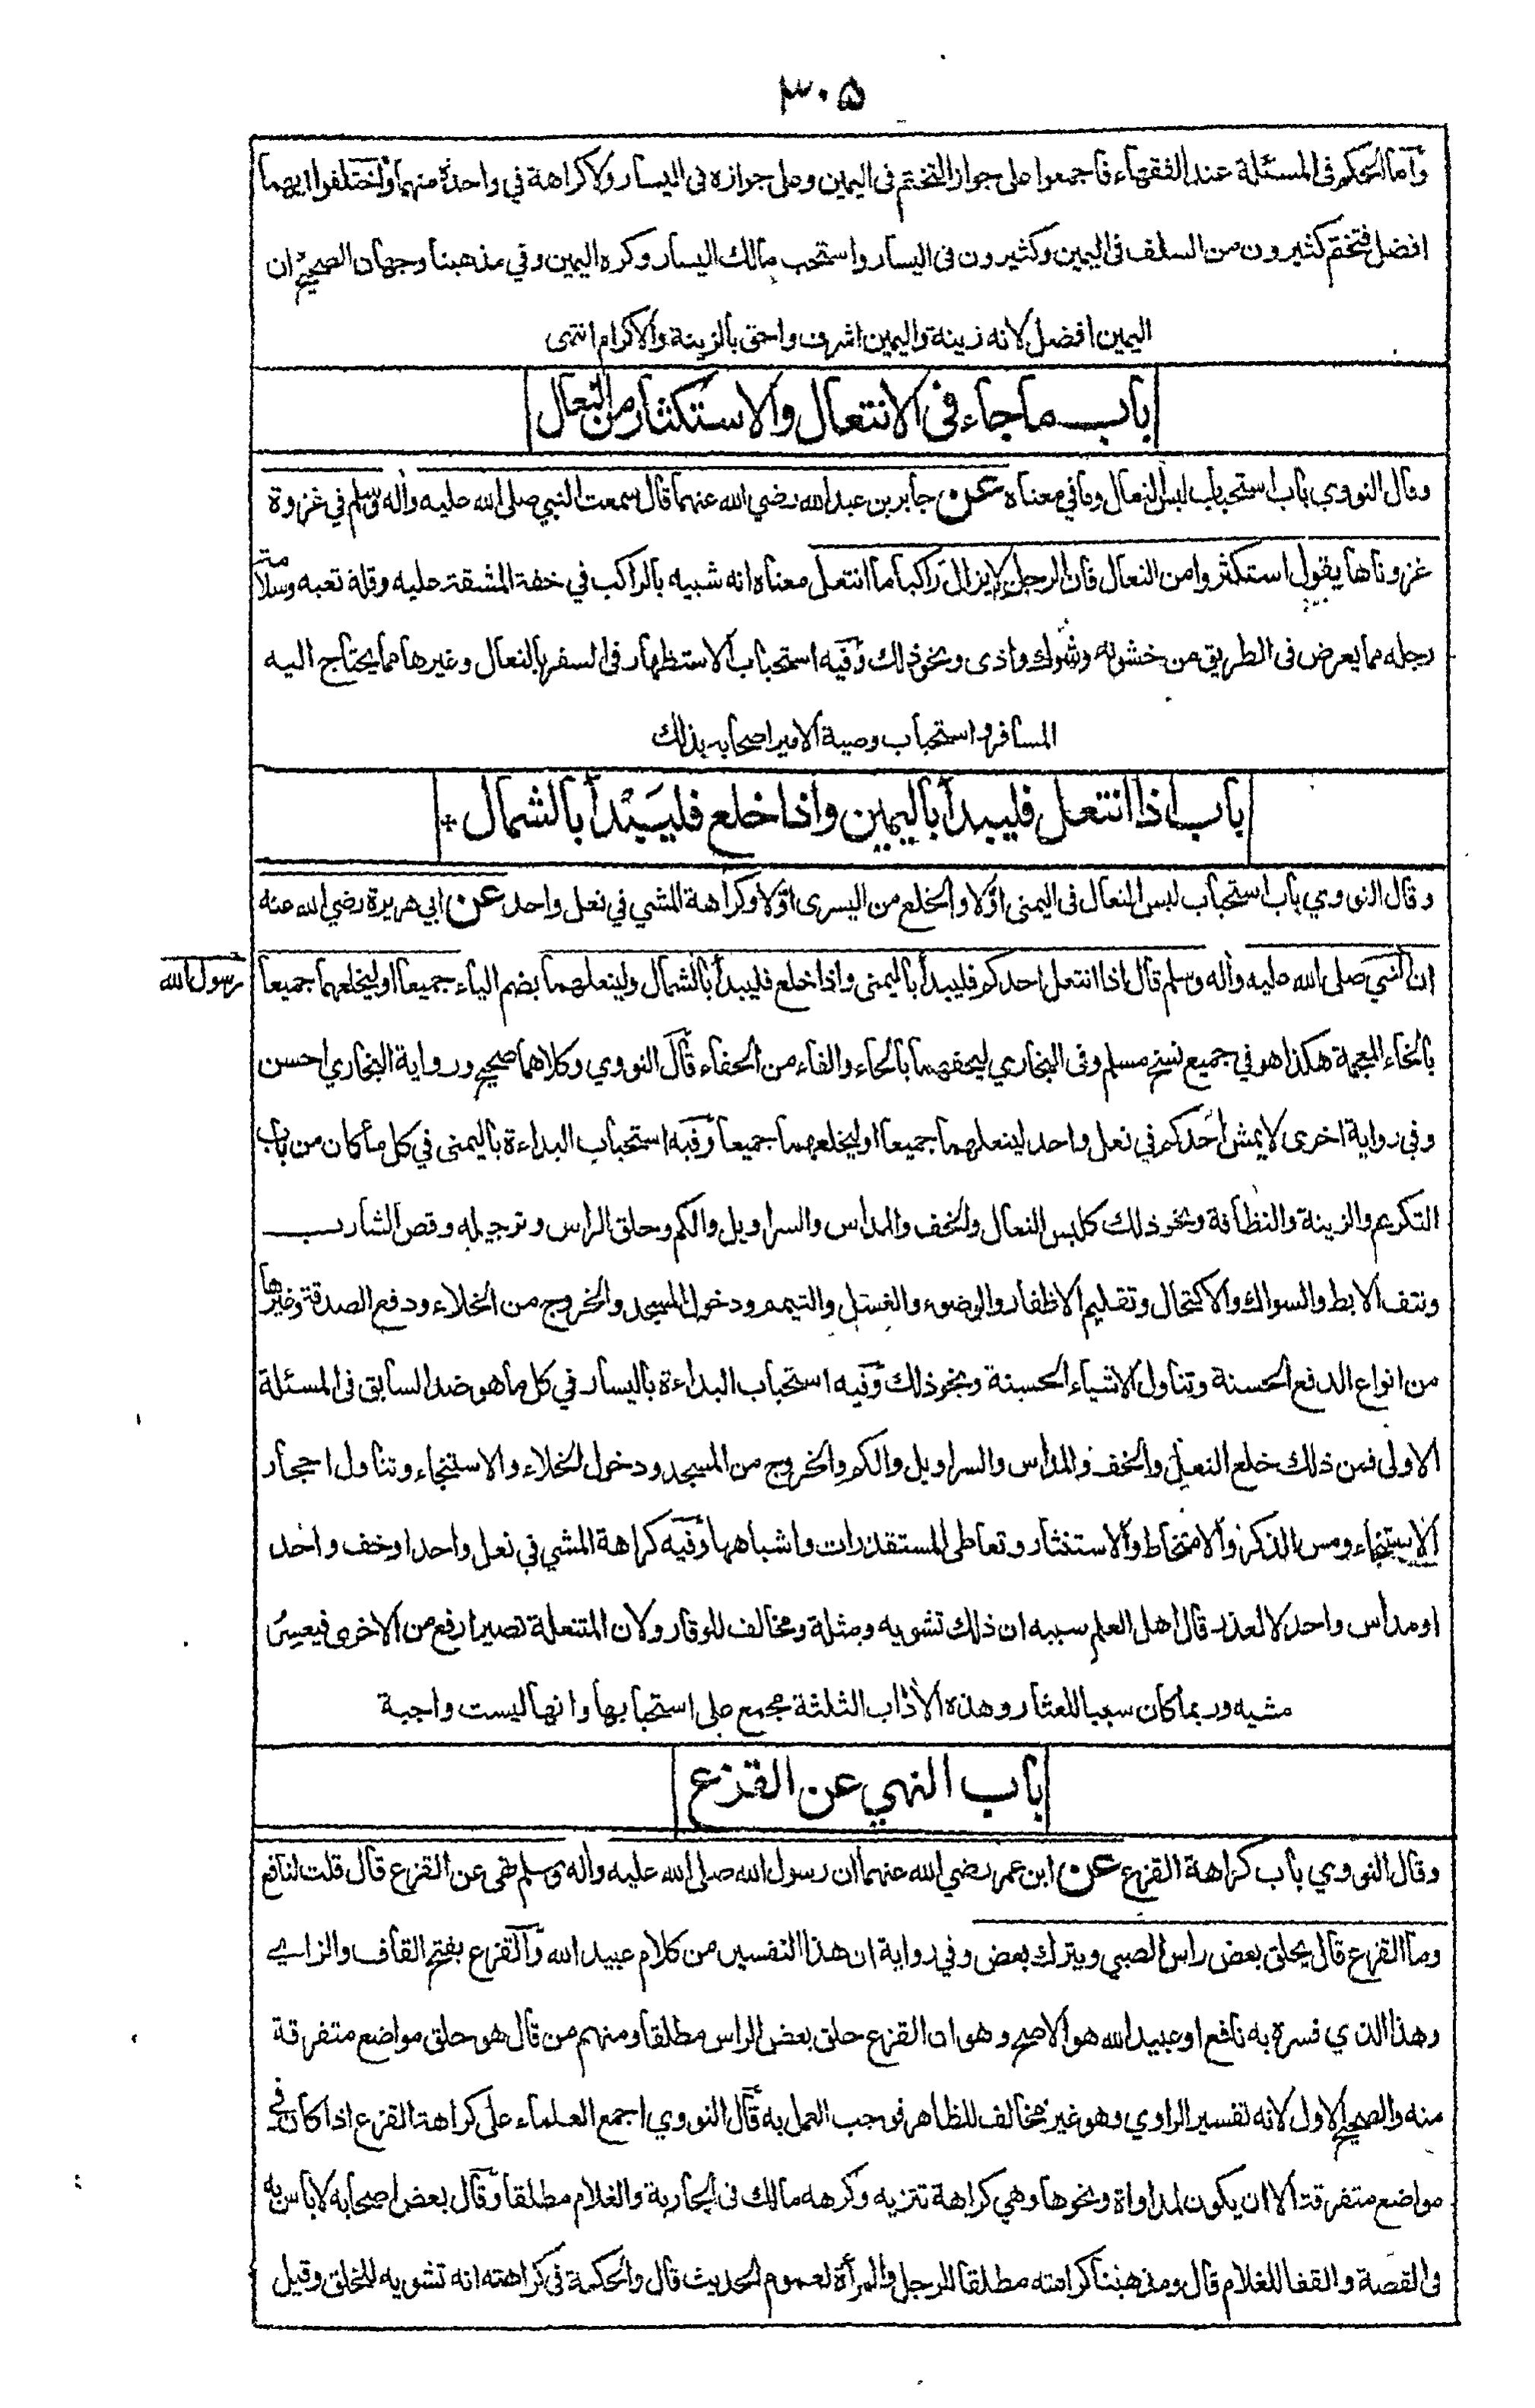 ٣٠٥
وأما الحكم في المسئلة عند الفقهاء فأجمعوا على جواز التختم في اليمين وعلى جوازه في اليسار ولا كراهة في واحدة منهما واختلفوا ايهما
افضل فتختم كثيرون من السلف في اليمين وكثيرون في اليسار واستحب مالك اليسار وكره اليمين وفي مذهبنا وجهان الصحيح ان
اليمين افضل لانه زينة واليمين اشرف واحق بالزينة والاكرام انتهى
باب ما جاء في الانتعال والاستكثار من النعال
وقال النووي باب استحباب لبس النعال وما في معناه عن جابر بن عبد الله رضي الله عنهما قال سمعت النبي صلى الله عليه وأله وسلم في غزوة
غزوناها يقول استكثروا من النعال فان الرجل لا يزال راكبا ما انتعل معناه انه شبيه بالراكب في خفة المشقة عليه وقلة تعبه وسلامة
رجله مما يعرض في الطريق من خشونة وشوك واذى ونحو ذلك وفيه استحباب الاستظهار في السفر بالنعال وغيرها مما يحتاج اليه
المسافر واستحباب وصية الامير اصحابه بذلك
باب اذا انتعل فليبدأ باليمين واذا خلع فليبدأ بالشمال +
وقال النووي باب استحباب لبس النعال في اليمنى اولا والخلع من اليسرى اولا وكراهة المشي في نعل واحد عن ابي هريرة رضي الله عنه
ان النبي صلى الله عليه وأله وسلم قال اذا انتعل احدكم فليبدأ باليمنى واذا خلع فليبدأ بالشمال ولينعلهما بضم الياء جميعا او ليخلعهما جميعا
رسول الله
بالخاء المعجمة هكذا هو في جميع نسخ مسلم وفي البخاري ليحفهما بالحاء والفاء من الحفاء قال النووي وكلاهما صحيح ورواية البخاري احسن
وفي رواية اخرى لا يمش احدكم في نعل واحد لينعلهما جميعا او ليخلعهما جميعا وفيه استحباب البداءة باليمنى في كل ما كان من باب
التكريم والزينة والنظافة ونحو ذلك كلبس النعال والخف والمداس والسراويل والكم وحلق الراس وترجيله وقص الشارب
ونتف الابط والسواك والاكتحال وتقليم الاظفار والوضوء والغسل والتيمم ودخول المسجد والخروج من الخلاء ودفع الصدقة وغيرها
من انواع الدفع الحسنة وتناول الاشياء الحسنة ونحو ذلك وفيه استحباب البداءة باليسار في كل ما هو ضد السابق في المسئلة
الاولى فمن ذلك خلع النعل والخف والمداس والسراويل والكم والخروج من المسجد ودخول الخلاء والاستنجاء وتناول احجار
الاستنجاء ومس الذكر والامتخاط والاستنثار وتعاطي المستقذرات واشباهها وفيه كراهة المشي في نعل واحد او خف واحد
او مداس واحد لا لعذر قال اهل العلم سببه ان ذلك تشويه ومثلة ومخالف للوقار ولان المنتعلة تصير ارفع من الاخرى فيعسر
مشيه وربما كان سببا للعثار وهذه الاداب الثلثة مجمع على استحبابها وانها ليست واجبة
باب النهي عن القزع
وقال النووي باب كراهة القزع عن ابن عمر رضي الله عنهما ان رسول الله صلى الله عليه وأله وسلم نهى عن القزع قال قلت لنافع
وما القزع قال يحلق بعض راس الصبي ويترك بعض وفي رواية ان هذا التفسير من كلام عبيد الله والقزع بفتح القاف والزاي
وهذا الذي فسره به نافع او عبيد الله هو الاصح وهو ان القزع حلق بعض الراس مطلقا ومنهم من قال هو حلق مواضع متفرقة
منه والصحيح الاول لانه تفسير الراوي وهو غير مخالف للظاهر فوجب العمل به قال النووي اجمع العلماء على كراهة القزع اذا كان في
مواضع متفرقة الا ان يكون لمداواة ونحوها وهي كراهة تنزيه وكرهه مالك في الجارية والغلام مطلقا وقال بعض اصحابه لا باس به
في القصة والقفا للغلام قال ومذهبنا كراهته مطلقا للرجل والمرأة لعموم الحديث قال والحكمة في كراهته انه تشويه للخلق وقيل